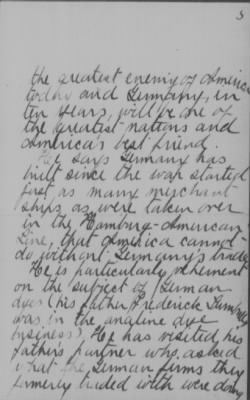 3
the greatest enemy of America
today and Germany, in
ten years, will be one of
the greatest nations and
America's best friend.
He says Germany has
built since the war started
just as many merchant
ships as were taken over
in the Hamburg-American
Line, that America cannot
do without Germany's trade
He is particularly vehement
on the subject of German
dyes (his father Frederick
was in the analine dye
business). He has visited his
father's partner who asked
what the German firms they
formerly traded with were doing